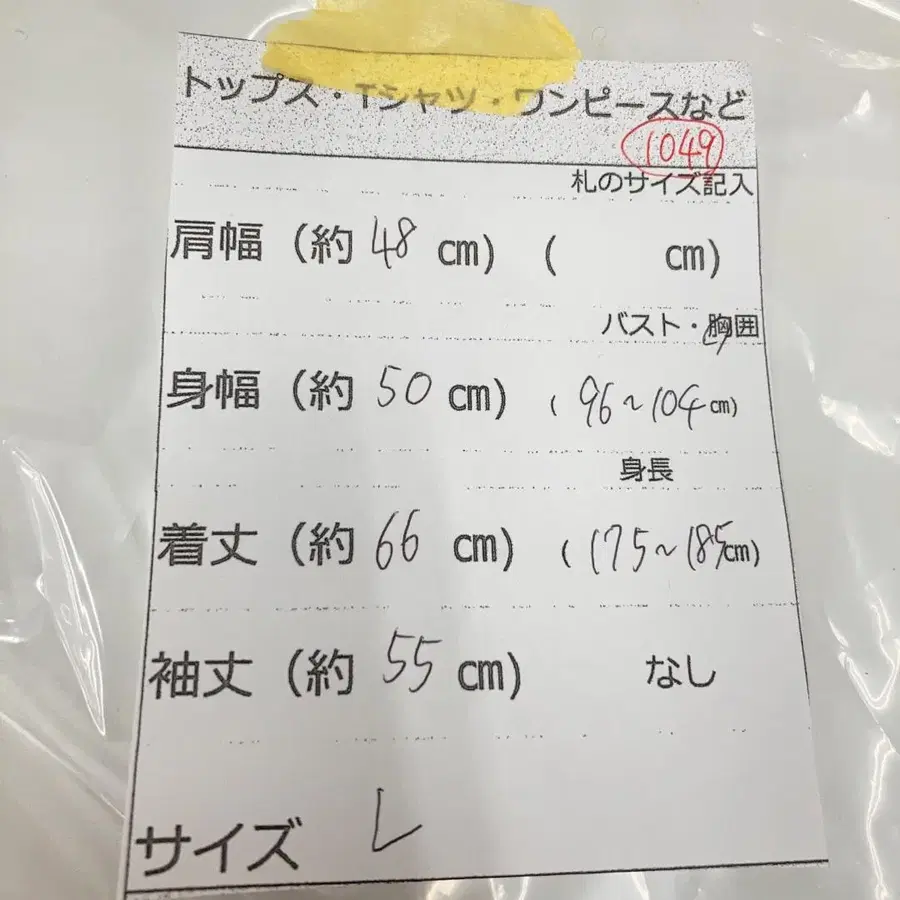 トップス・Tシャツ・ワンピースなど
1049
札のサイズ記入
肩幅 (約 48 cm) ( cm)
バスト・胸囲
身幅 (約 50 cm) ( 96~104 cm)
身長
着丈 (約 66 cm) ( 175~185 cm)
袖丈 (約 55 cm) なし
サイズ L